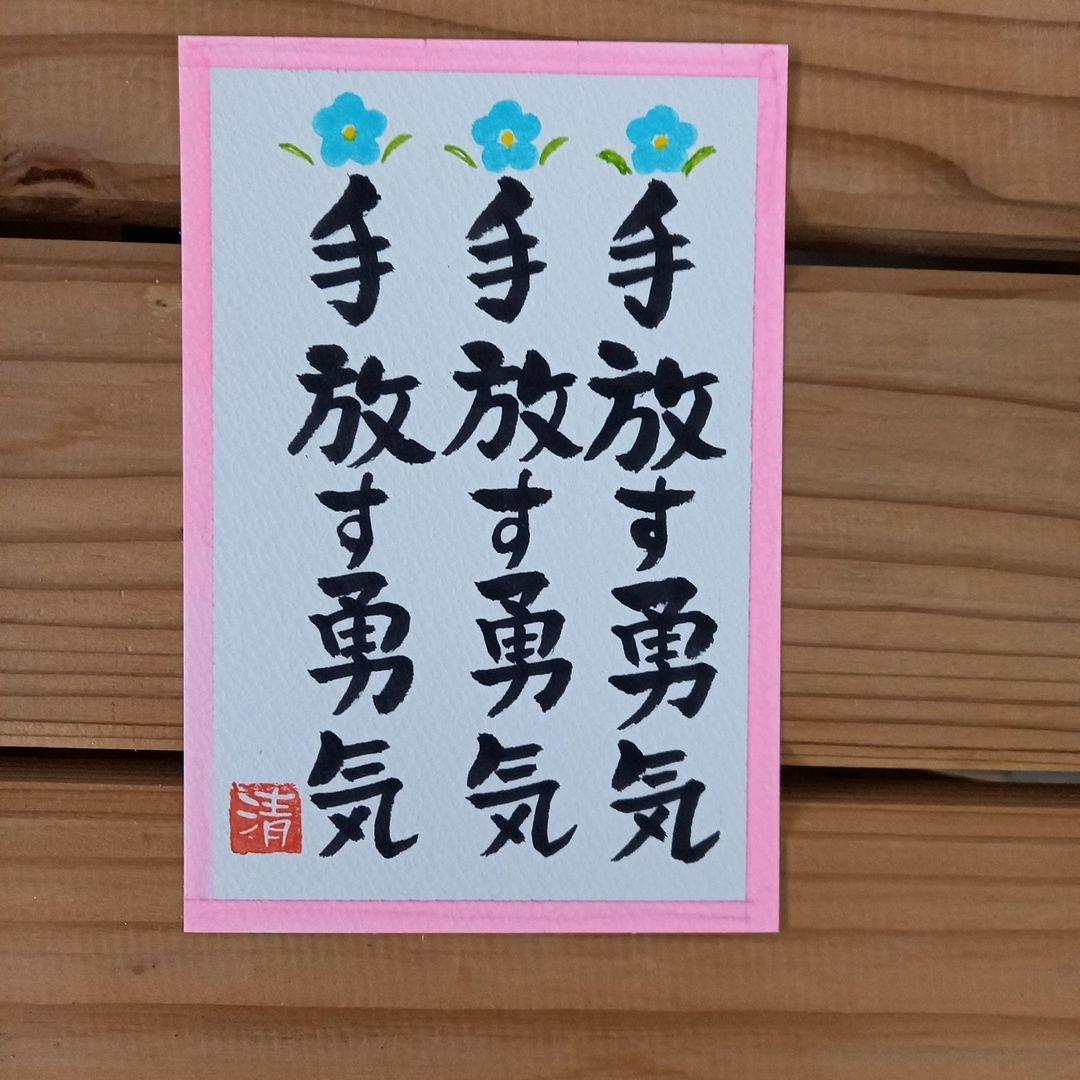 手放す勇気
手放す勇気
手放す勇気
清